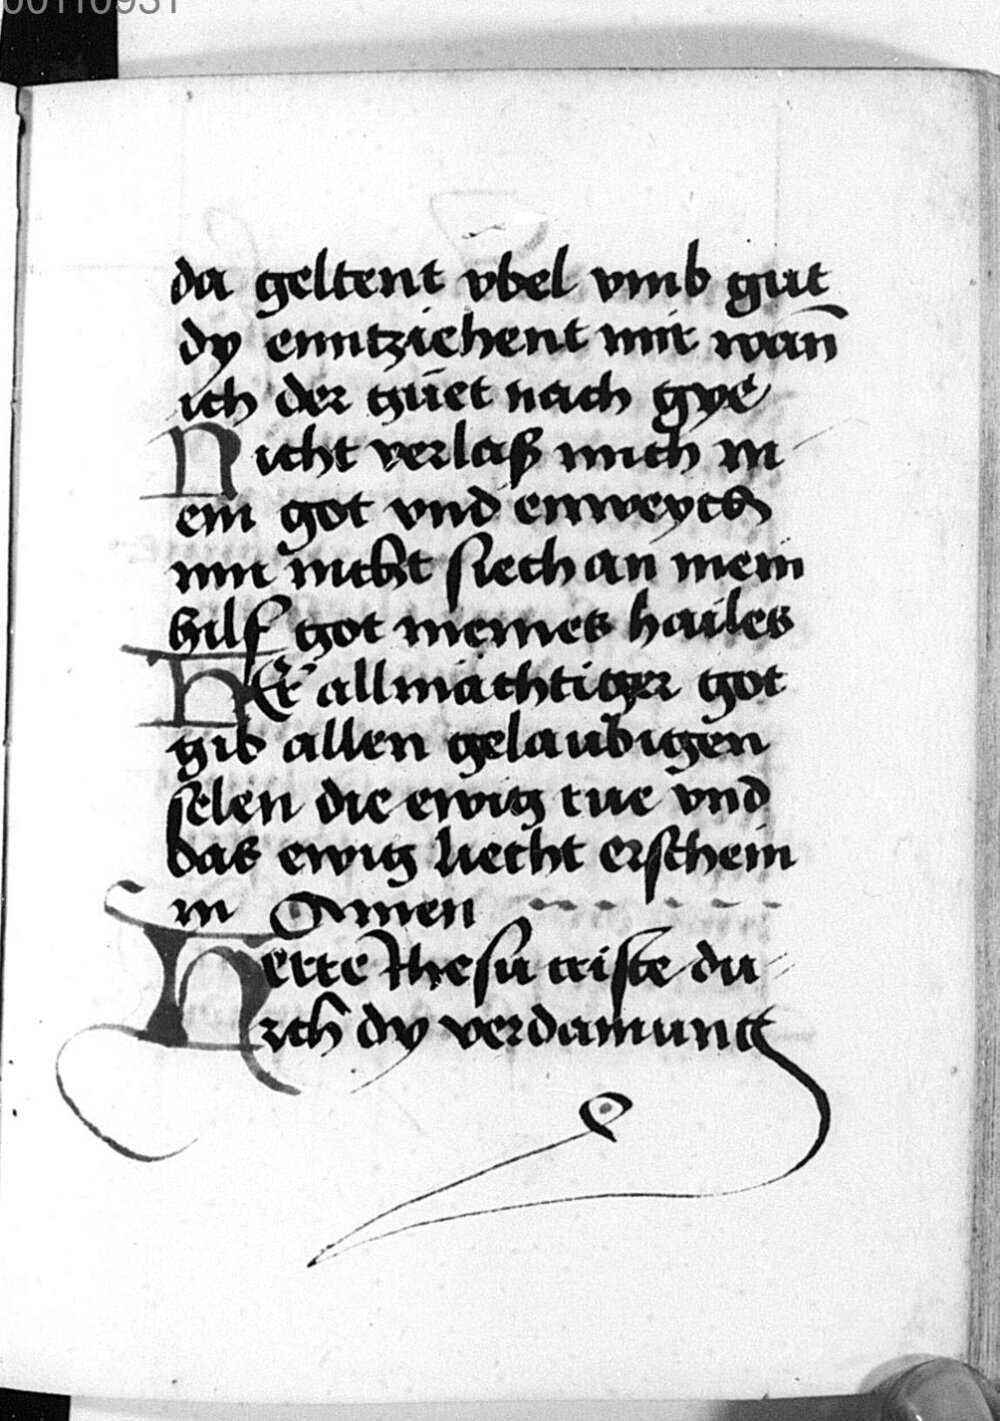 00110931
da geltent vbel vmb gut
dy enntziehent mir wan̄
ich der güet nach gye
Nicht verlaß mich m
ein got vnd enweych
mir nicht siech an mein
hilf got meines hailes
Her̄ allmächtiger got
gib allen gelaubigen
selen die ewig rue vnd
das ewig liecht erschein
in Amen
Herre Jhesu criste du
rch dy verdamung